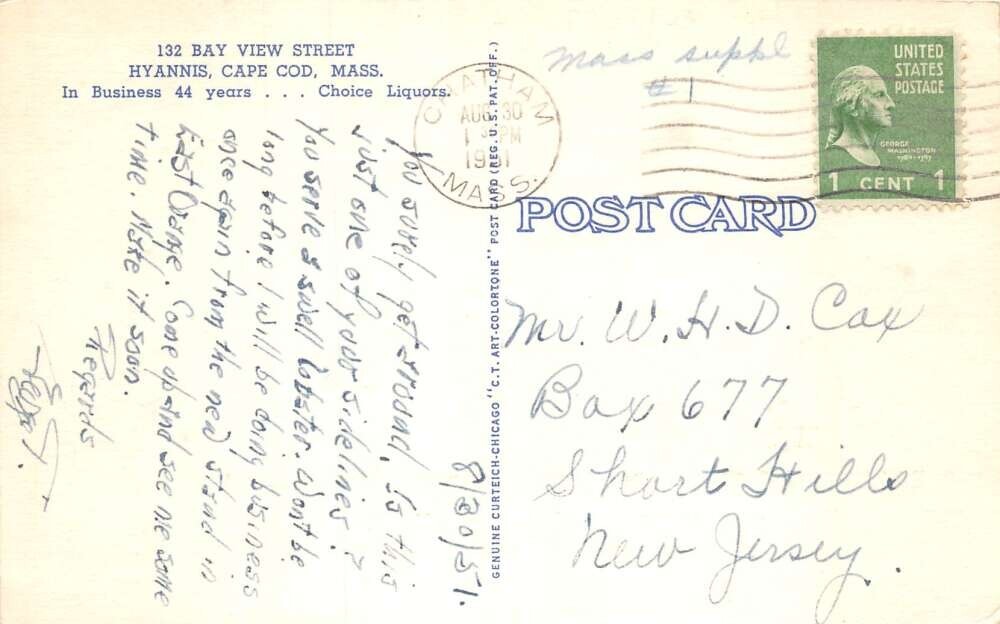 132 BAY VIEW STREET
HYANNIS, CAPE COD, MASS.
In Business 44 years . . . Choice Liquors.
8/30/51.
You surely get around, Is this
just one of your sidelines?
You serve a swell lobster. Wont be
long before I will be doing business
once again from the new stand in
East Orange. Come up and see me some
time. Make it soon.
Regards
GENUINE CURTEICH-CHICAGO "C.T. ART-COLORTONE" POST CARD (REG. U.S. PAT. OFF.)
CHATHAM
AUG 30
PM
MASS.
Mass suppl
#1
UNITED
STATES
POSTAGE
GEORGE
WASHINGTON
1789-1797
1 CENT 1
POST CARD
Mr. W. H. D. Cox
Box 677
Short Hills
New Jersey.